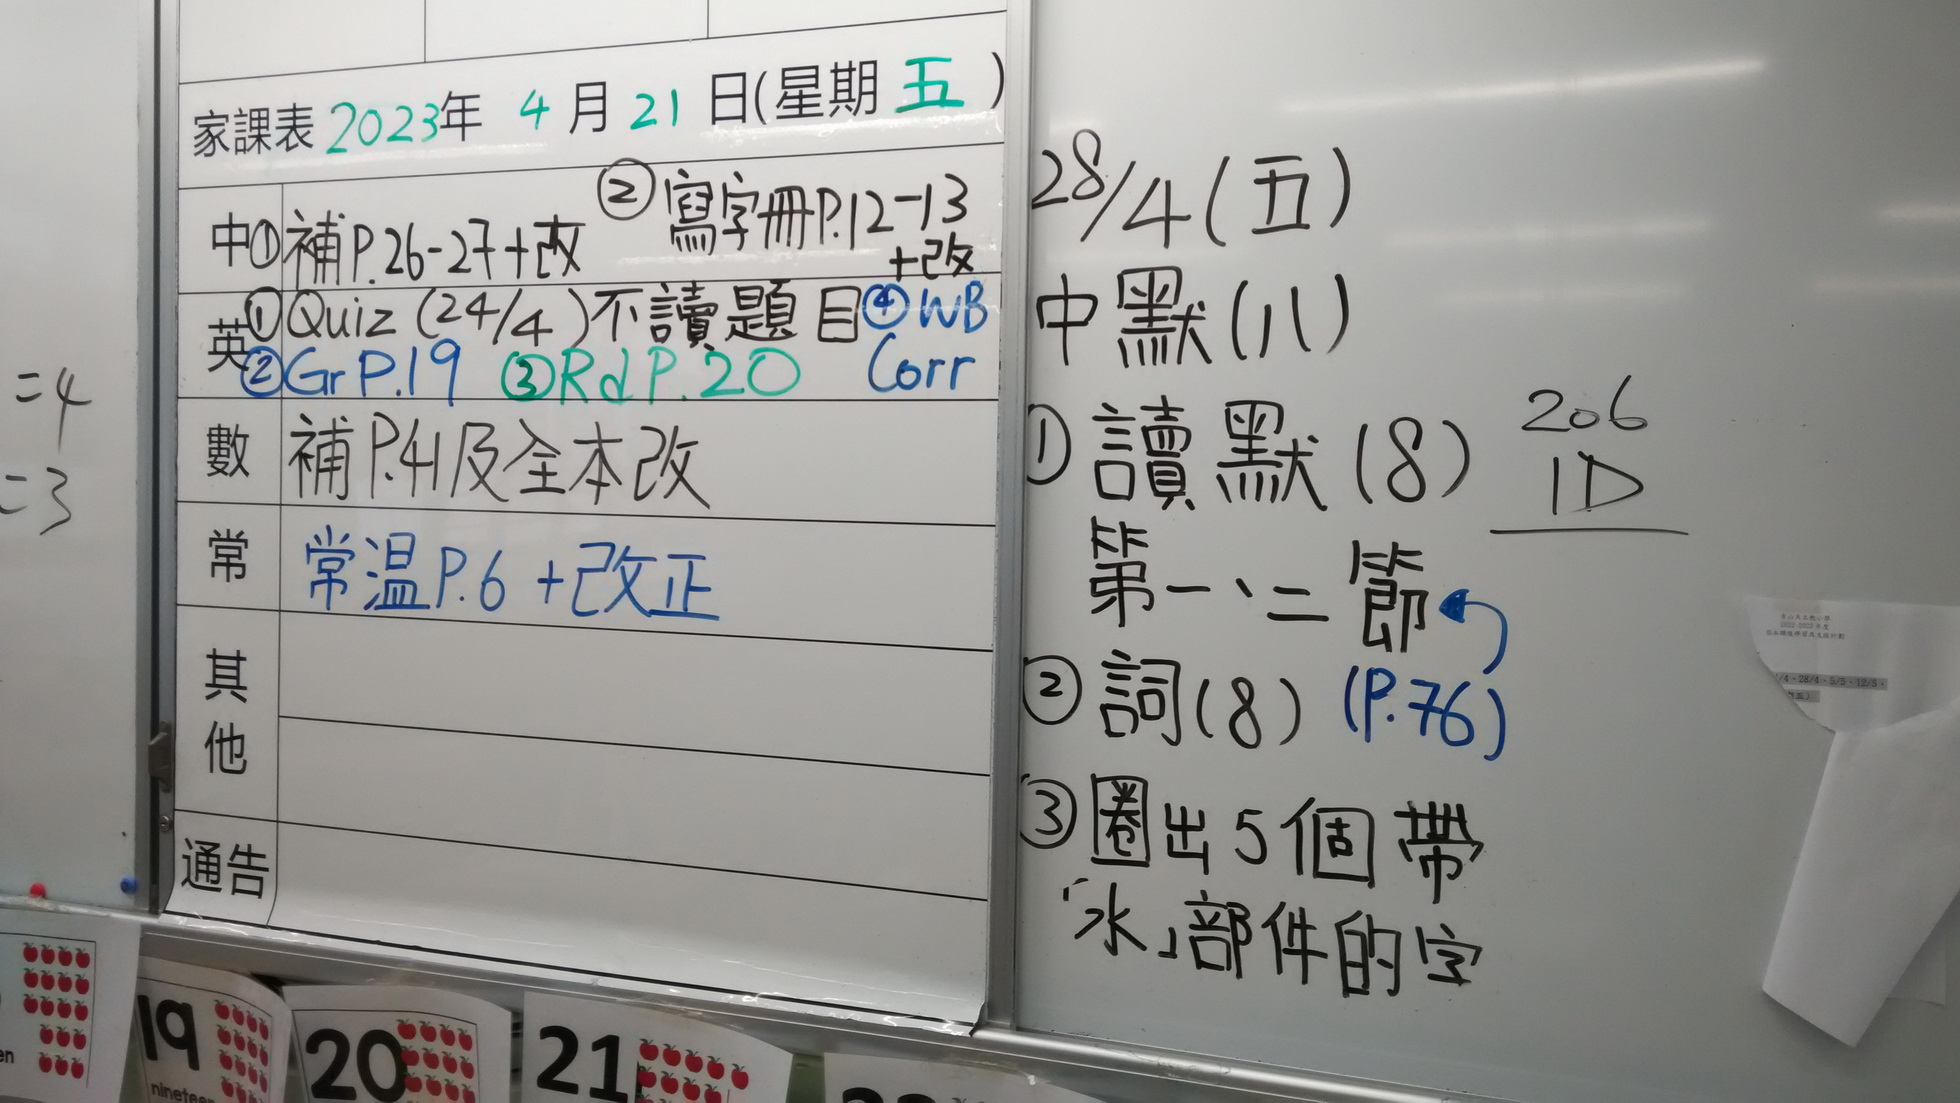 家課表 2023年 4月 21日(星期五)
中 ①補P.26-27+改 ②寫字冊P.12-13
+改
英 ①Quiz (24/4)不讀題目 ④WB
②Gr P.19 ③Rd P.20 Corr
數 補P.41及全本改
常 常溫P.6 +改正
其他
通告
28/4(五)
中默(八)
①讀默(8)
第一、二節
②詞(8) (P.76)
③圈出5個帶
「水」部件的字
206
1D
=4
=3
19
nineteen
20
21